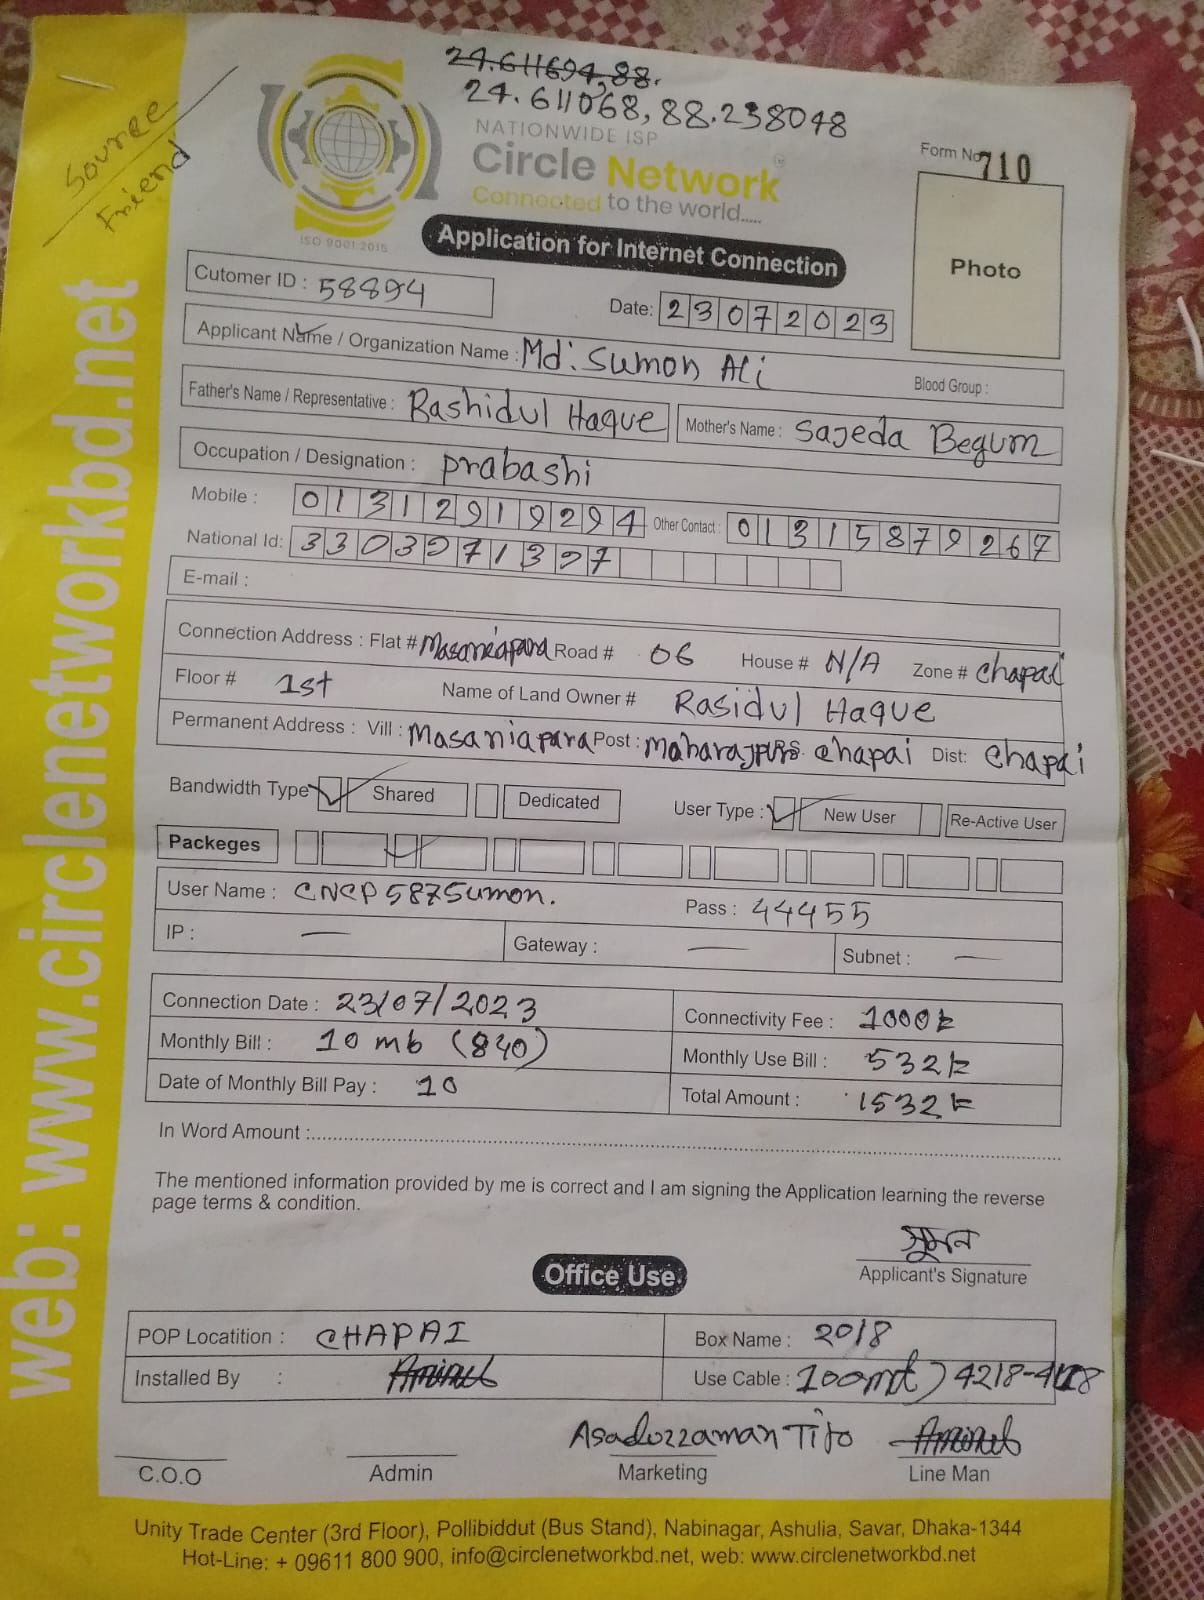 24.611694,88.
24.611068,88.238048
Source
Friend
NATIONWIDE ISP
Circle Network
Connected to the world.....
ISO 9001:2015
Form No 710
Photo
Application for Internet Connection
Cutomer ID : 58894
Date: 23072023
Applicant Name / Organization Name : Md. Sumon Ali
Blood Group :
Father's Name / Representative : Rashidul Haque
Mother's Name : Sajeda Begum
Occupation / Designation : prabashi
Mobile : 01312919294 Other Contact : 01315879267
National Id: 3303971397
E-mail :
Connection Address : Flat # Masaniapara Road # 06 House # N/A Zone # chapai
Floor # 1st Name of Land Owner # Rasidul Haque
Permanent Address : Vill : Masaniapara Post : Maharajpur chapai Dist: chapai
Bandwidth Type Shared Dedicated User Type : New User Re-Active User
Packeges
User Name : CNCP587Sumon. Pass : 44455
IP : — Gateway : — Subnet : —
Connection Date : 23/07/2023 Connectivity Fee : 1000
Monthly Bill : 10 mb (840) Monthly Use Bill : 532
Date of Monthly Bill Pay : 10 Total Amount : 1532
In Word Amount :
The mentioned information provided by me is correct and I am signing the Application learning the reverse
page terms & condition.
সুমন
Applicant's Signature
Office Use
POP Locatition : CHAPAI Box Name : 2018
Installed By : Aminul Use Cable : 100mt) 4218-
Asadozzaman Tito Aminul
C.O.O Admin Marketing Line Man
Unity Trade Center (3rd Floor), Pollibiddut (Bus Stand), Nabinagar, Ashulia, Savar, Dhaka-1344
Hot-Line: + 09611 800 900, info@circlenetworkbd.net, web: www.circlenetworkbd.net
web: www.circlenetworkbd.net